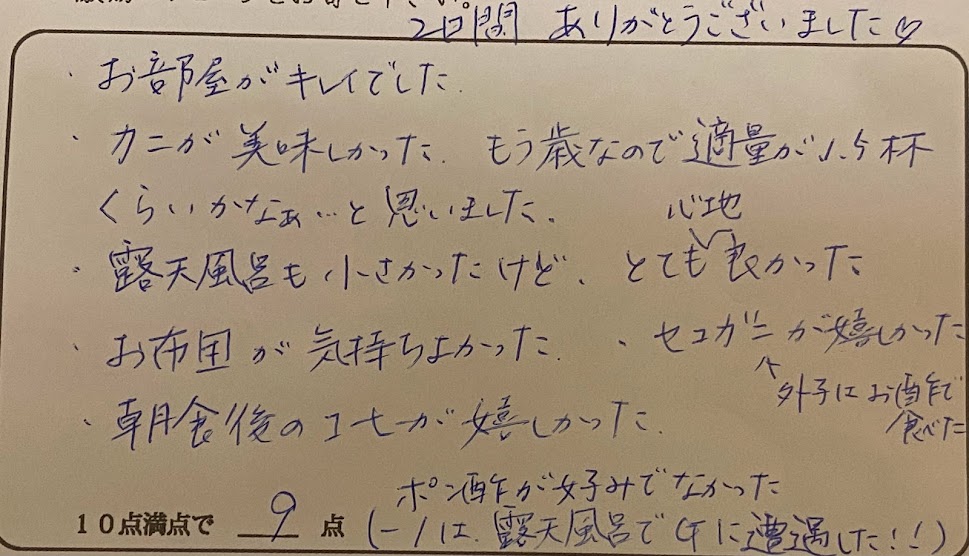 2日間 ありがとうございました♡
・お部屋がキレイでした.
・カニが美味しかった. もう歳なので適量が1.5杯
くらいかなぁ…と思いました.
心地
・露天風呂も小さかったけど、とても良かった
・お布団が気持ちよかった. ・セコガニが嬉しかった
外子にお酢で
食べた
・朝食後のコーヒーが嬉しかった.
ポン酢が好みでなかった
10点満点で 9 点 (-1は、露天風呂でGに遭遇した!!)